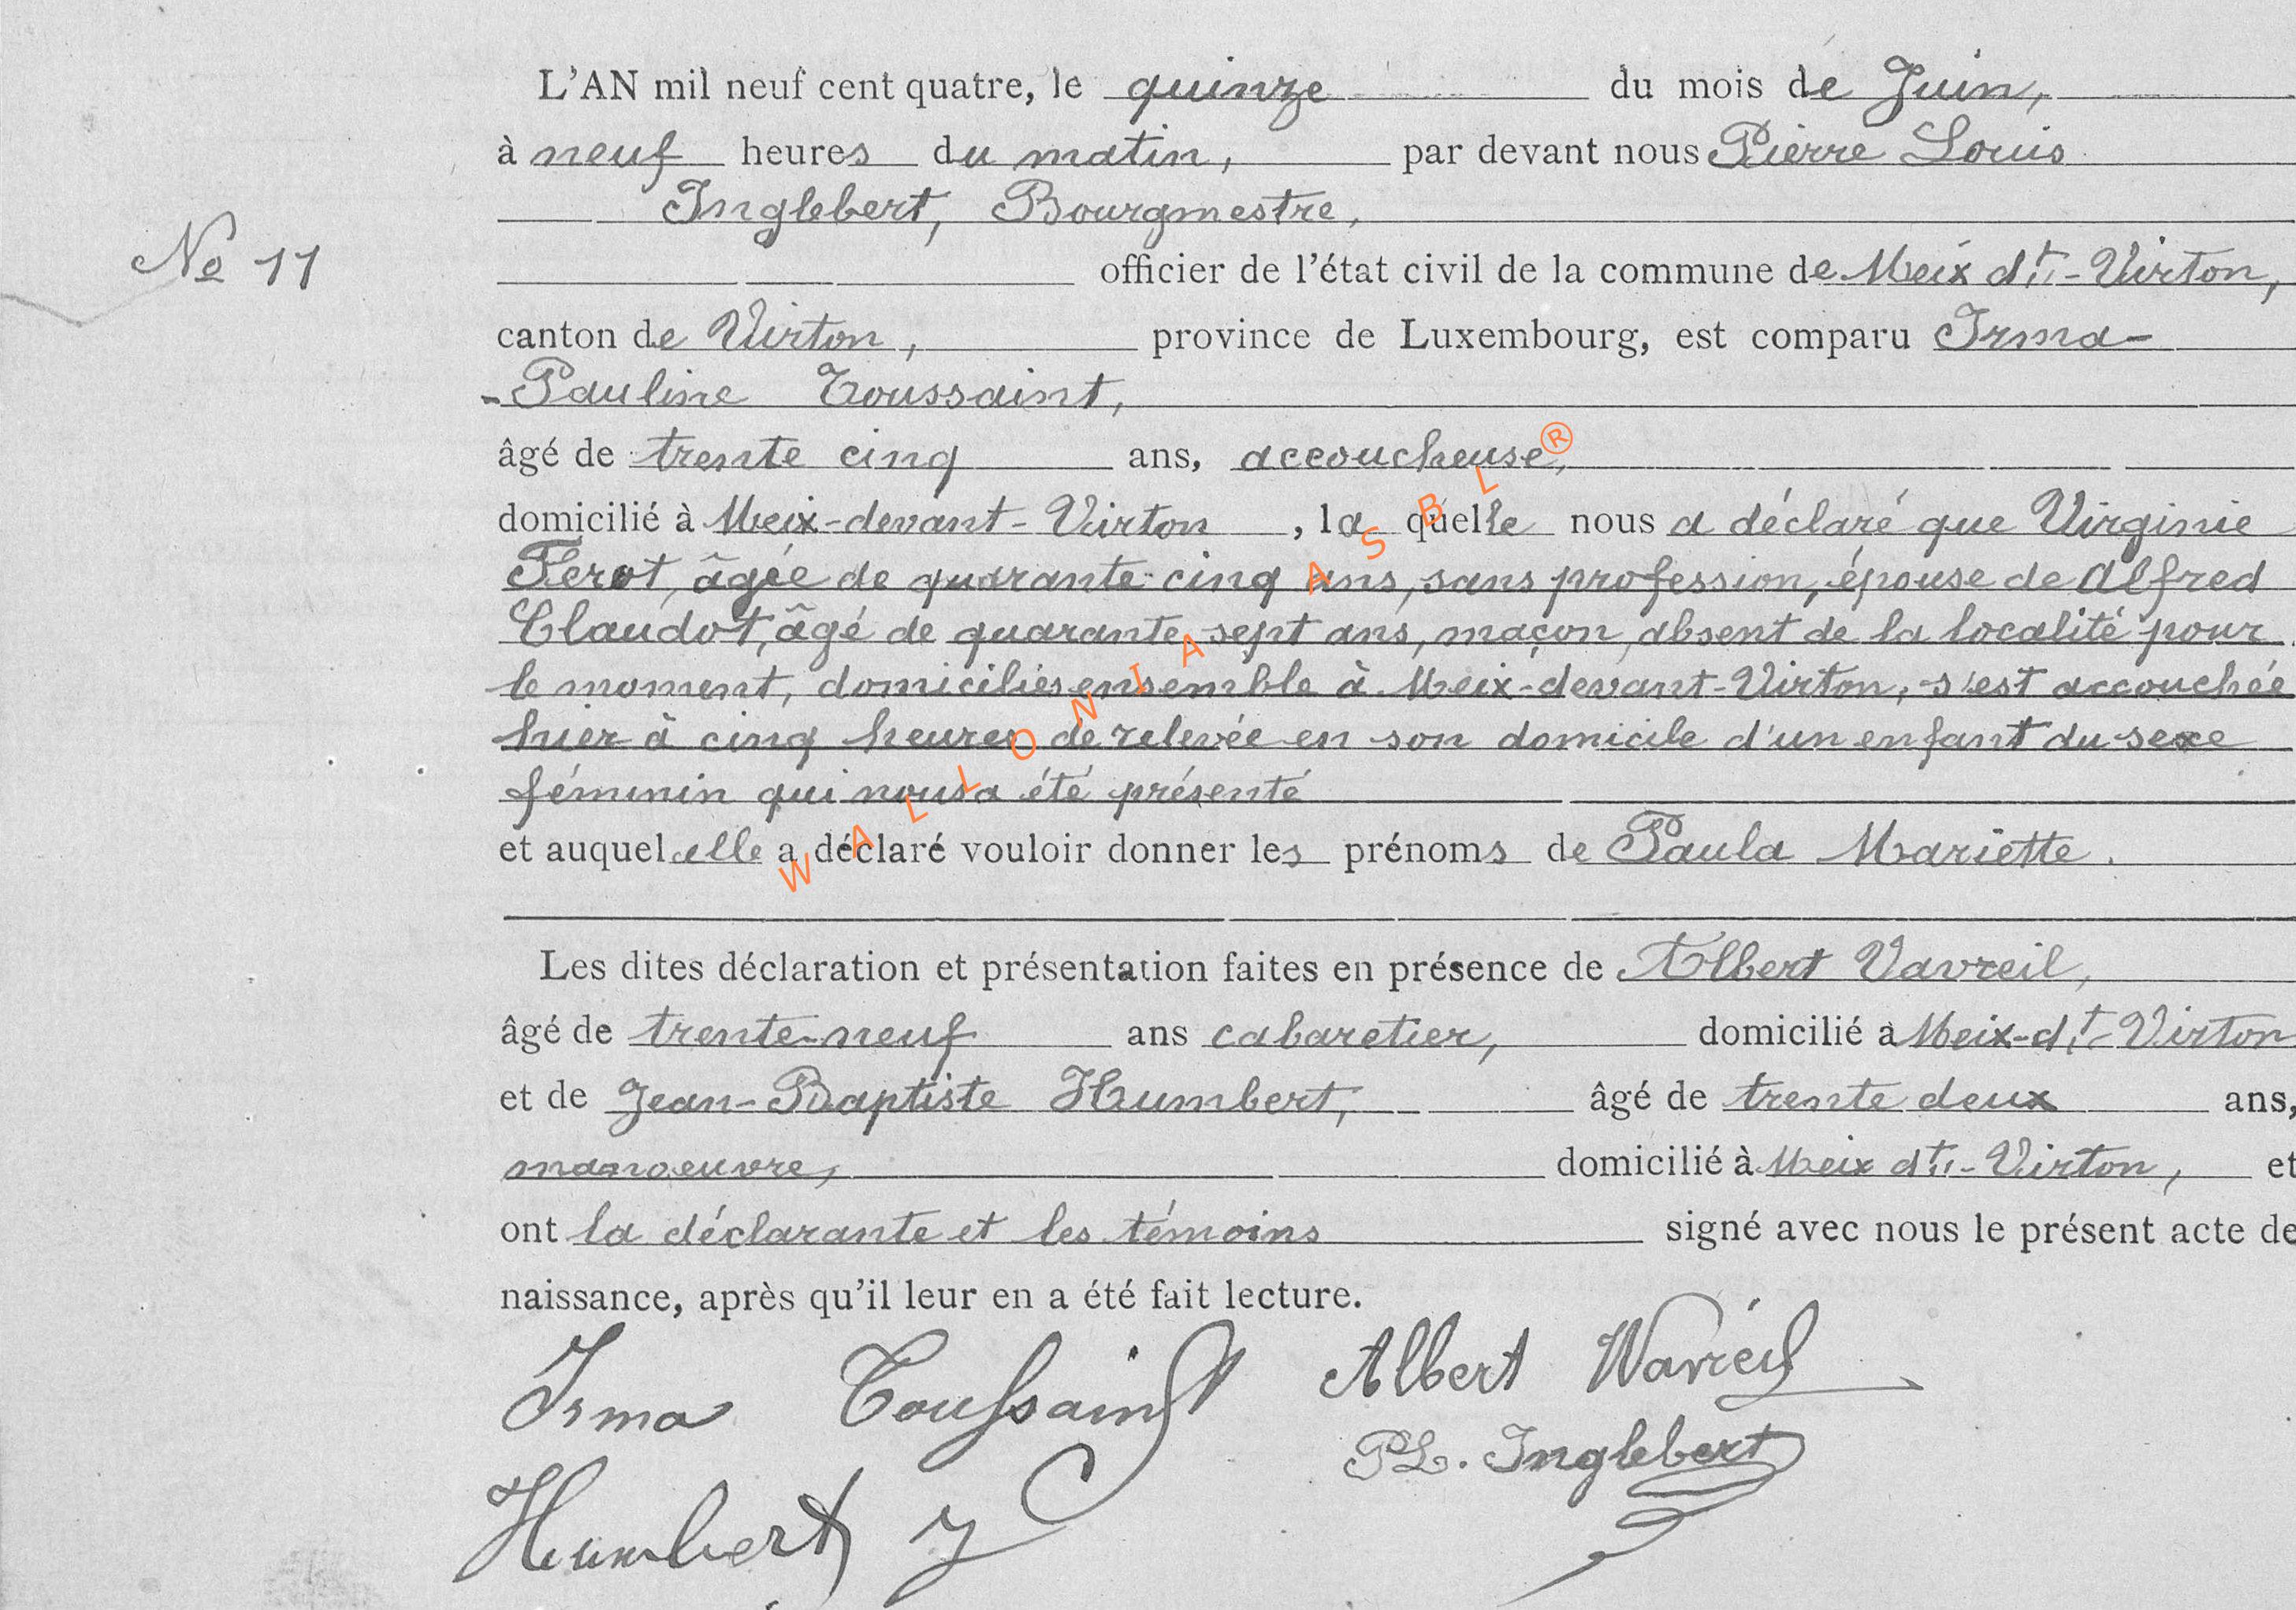 L'AN mil neuf cent quatre, le quinze du mois de Juin,
à neuf heures du matin, par devant nous Pierre Louis
Inglebert, Bourgmestre,
No 11
officier de l'état civil de la commune de Meix dt-Virton,
canton de Virton, province de Luxembourg, est comparu Irma-
-Pauline Toussaint,
âgé de trente cinq ans, accoucheuse,
domicilié à Meix-devant-Virton, laquelle nous a déclaré que Virginie
Ferot, âgée de quarante-cinq ans, sans profession, épouse de Alfred
Claudot, âgé de quarante sept ans, maçon, absent de la localité pour
le moment, domiciliés ensemble à Meix-devant-Virton, s'est accouchée
hier à cinq heures de relevée en son domicile d'un enfant du sexe
féminin qui nous a été présenté
et auquel elle a déclaré vouloir donner les prénoms de Paula Mariette.
Les dites déclaration et présentation faites en présence de Albert Vavreil,
âgé de trente-neuf ans cabaretier, domicilié à Meix-dt-Virton
et de Jean-Baptiste Humbert, âgé de trente deux ans,
manoeuvre, domicilié à Meix dt-Virton, et
ont la déclarante et les témoins signé avec nous le présent acte de
naissance, après qu'il leur en a été fait lecture.
Irma Toussaint Albert Wavreil
PL. Inglebert
Humbert J
WALLONIA ASBL®